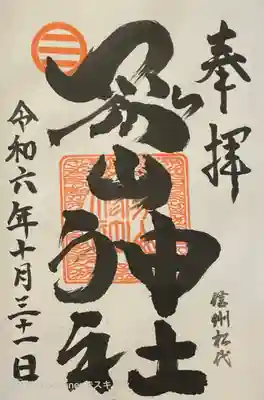 奉拝
信州松代
象山神社
令和六年十月三十一日